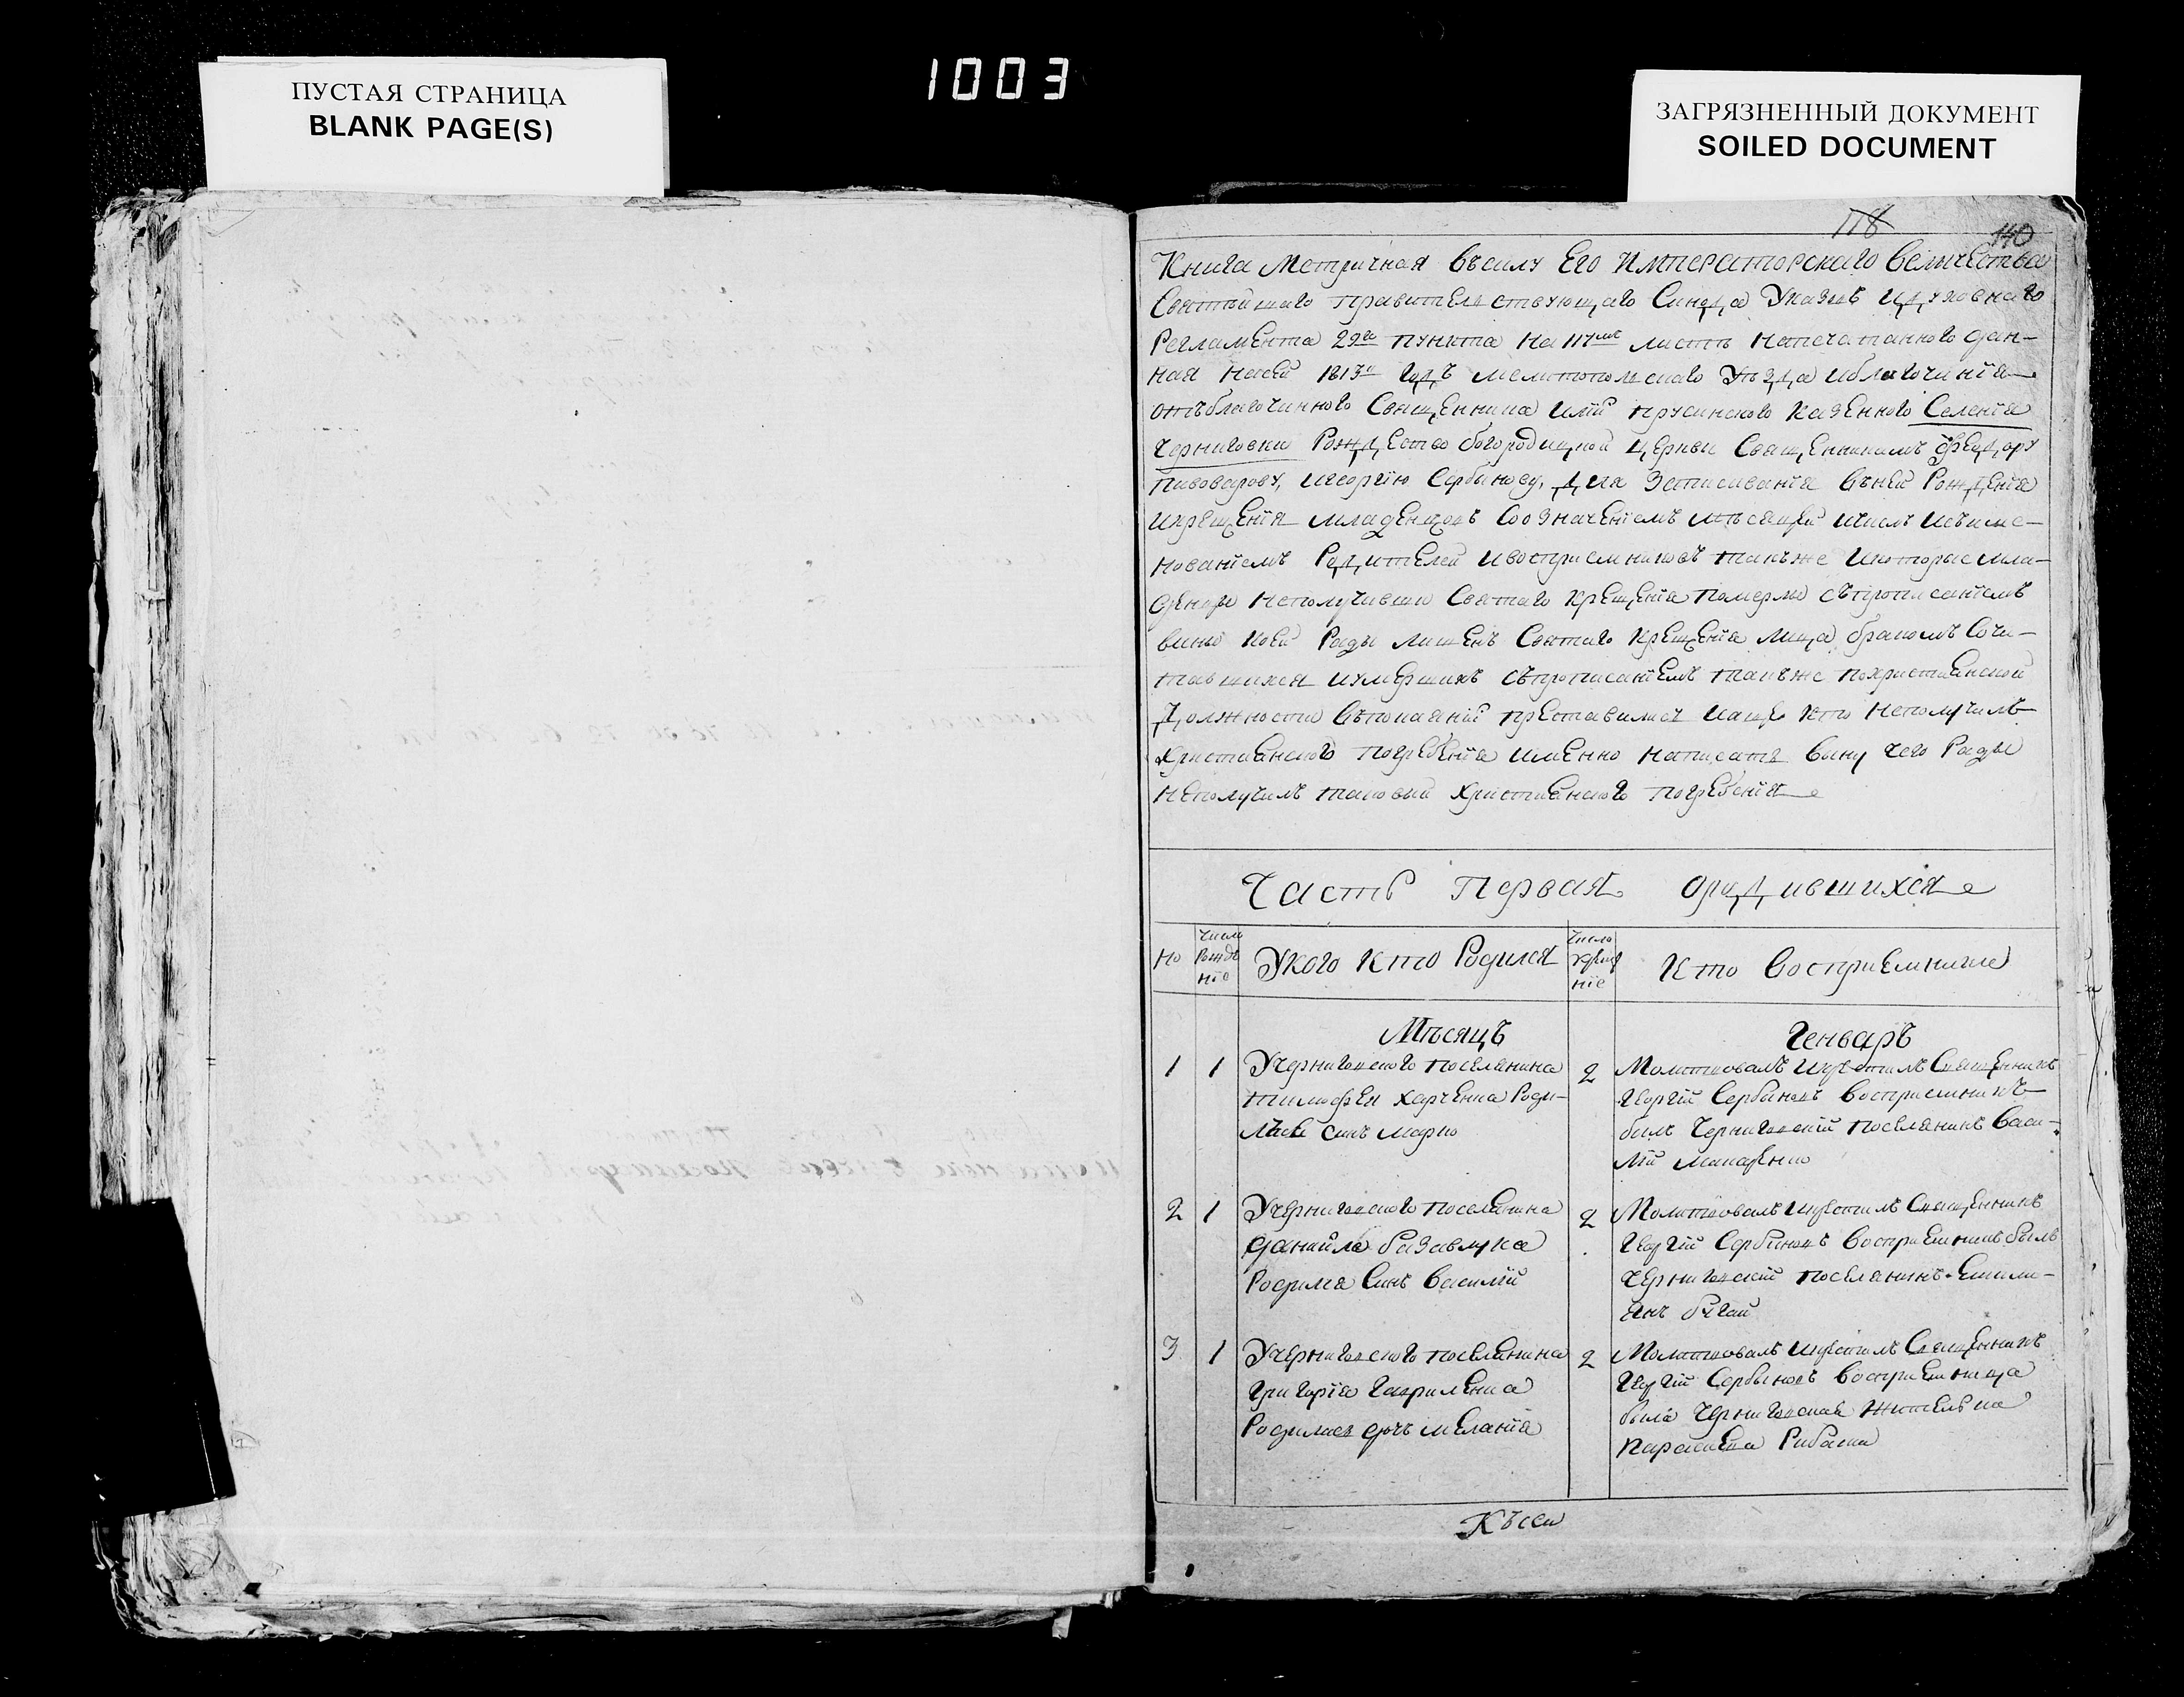 1003
ПУСТАЯ СТРАНИЦА
BLANK PAGE(S)
ЗАГРЯЗНЕННЫЙ ДОКУМЕНТ
SOILED DOCUMENT
118
140
Книга Метричная въсилу Его Императорскаго Величества
Святѣйшаго правительствующаго Синода Указовъ идуховнаго
Регламента 29го пункта на 117мъ листѣ напечатанного дан-
ная насей 1813й годъ мелитополскаго Уѣзда иблагочинія
отъблагочинного Священника Иліи прусинского казенного Селенія
Черниговки Рождество богородицкой церкви Священникамъ Феодору
пивоварову, игеоргію Сербинову, для Записиванія въней Рожденія
икрещенія младенцовъ Соозначеніемъ мѣсяцей ичислъ исъиме-
нованіемъ Родителей ивоспріемниковъ такъже икоторые мла-
денцы неполучивши Святаго крещенія померли съпрописаніемъ
вины коей Ради лишенъ Святаго крещенія лица бракомъ Соче-
тавшихся иумершихъ съпрописаніемъ такъже похристіенской
Должности въпокаяніи преставились иаще кто неполучилъ
христіенского погребенія именно написать вину чего Ради
неполучилъ таковый христіенского погребенія
Часть Первая ородившихся
Но
число
рожде
ніе
Укого кто Родился
число
креще
ніе
Кто воспріемники
Мѣсяцъ
Генварь
1 1 Учерниговского поселянина
тимофея харченка Роди-
лся синъ марко
2 Молитвовалъ икрестилъ Священникъ
георгій Сербиновъ воспріемникъ
былъ Черниговскій поселянинъ Васи-
лій
2 1 Учерниговского поселянина
данийла базавлука
Родился Синъ василій
2 Молитвовалъ икрестилъ Священникъ
георгій Сербиновъ воспріемникъ былъ
черниговскій поселянинъ Емили-
янъ бугай
3 1 Учерниговского поселянина
григорія гавриленка
Родилась дочь меланія
2 Молитвовалъ икрестилъ Священникъ
георгій Сербиновъ воспріемница
была Черниговская жителька
параскева Рибалка
Късей